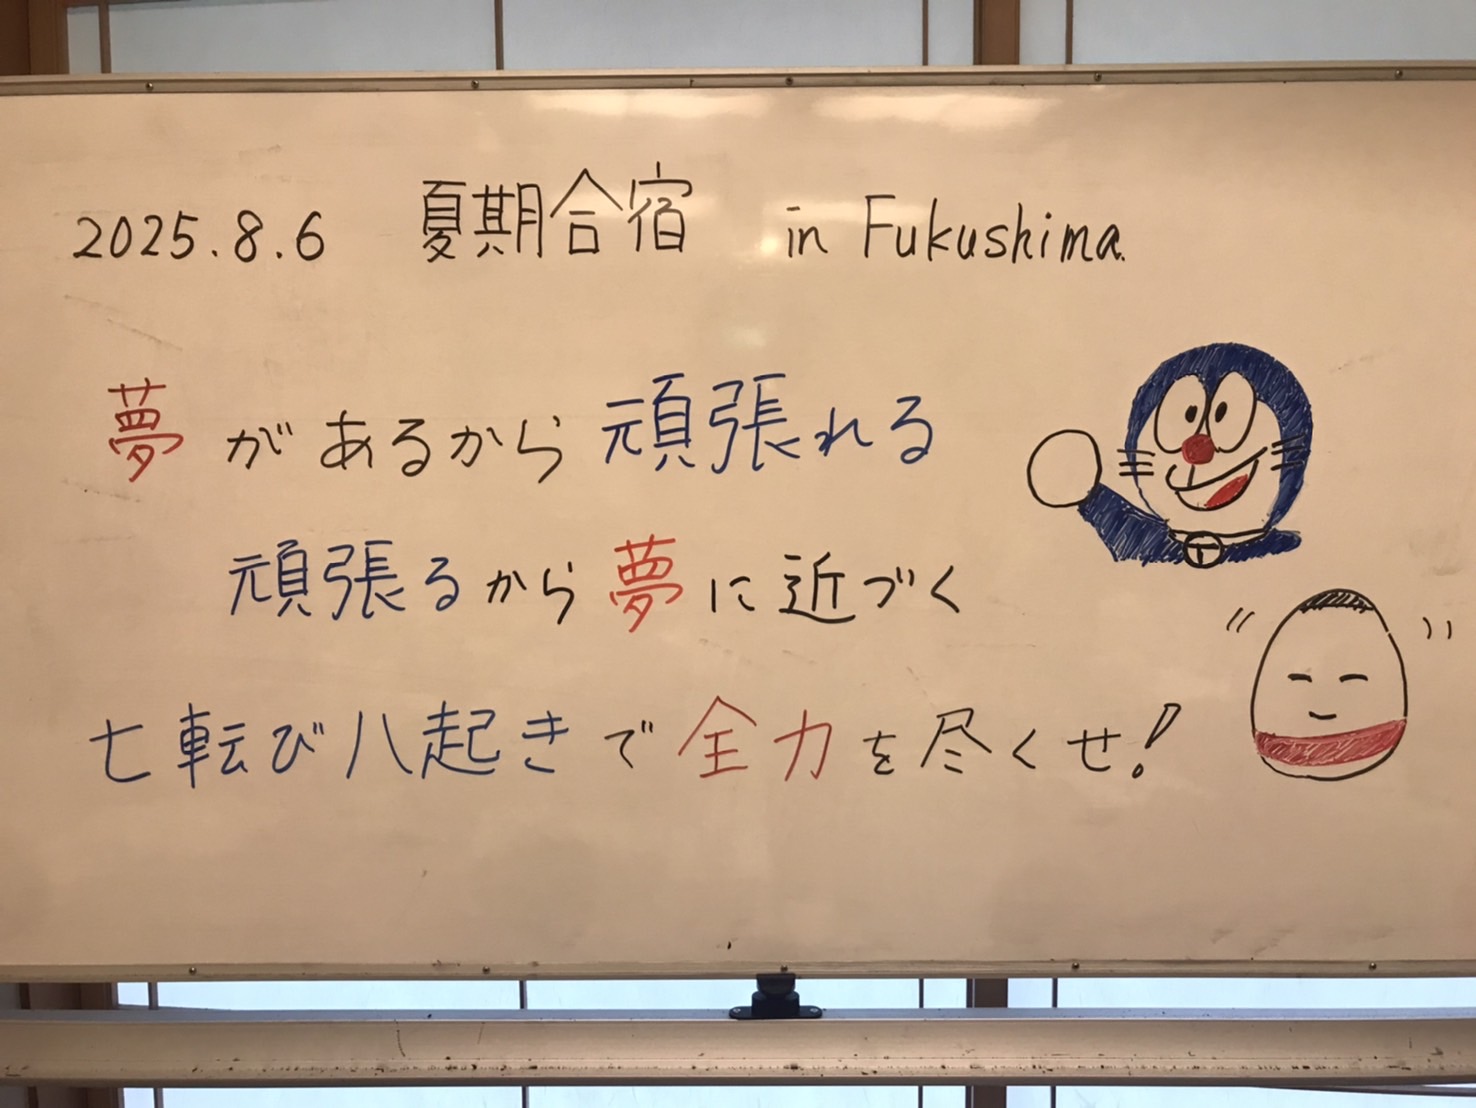 2025.8.6 夏期合宿 in Fukushima.
夢があるから頑張れる
頑張るから夢に近づく
七転び八起きで全力を尽くせ!